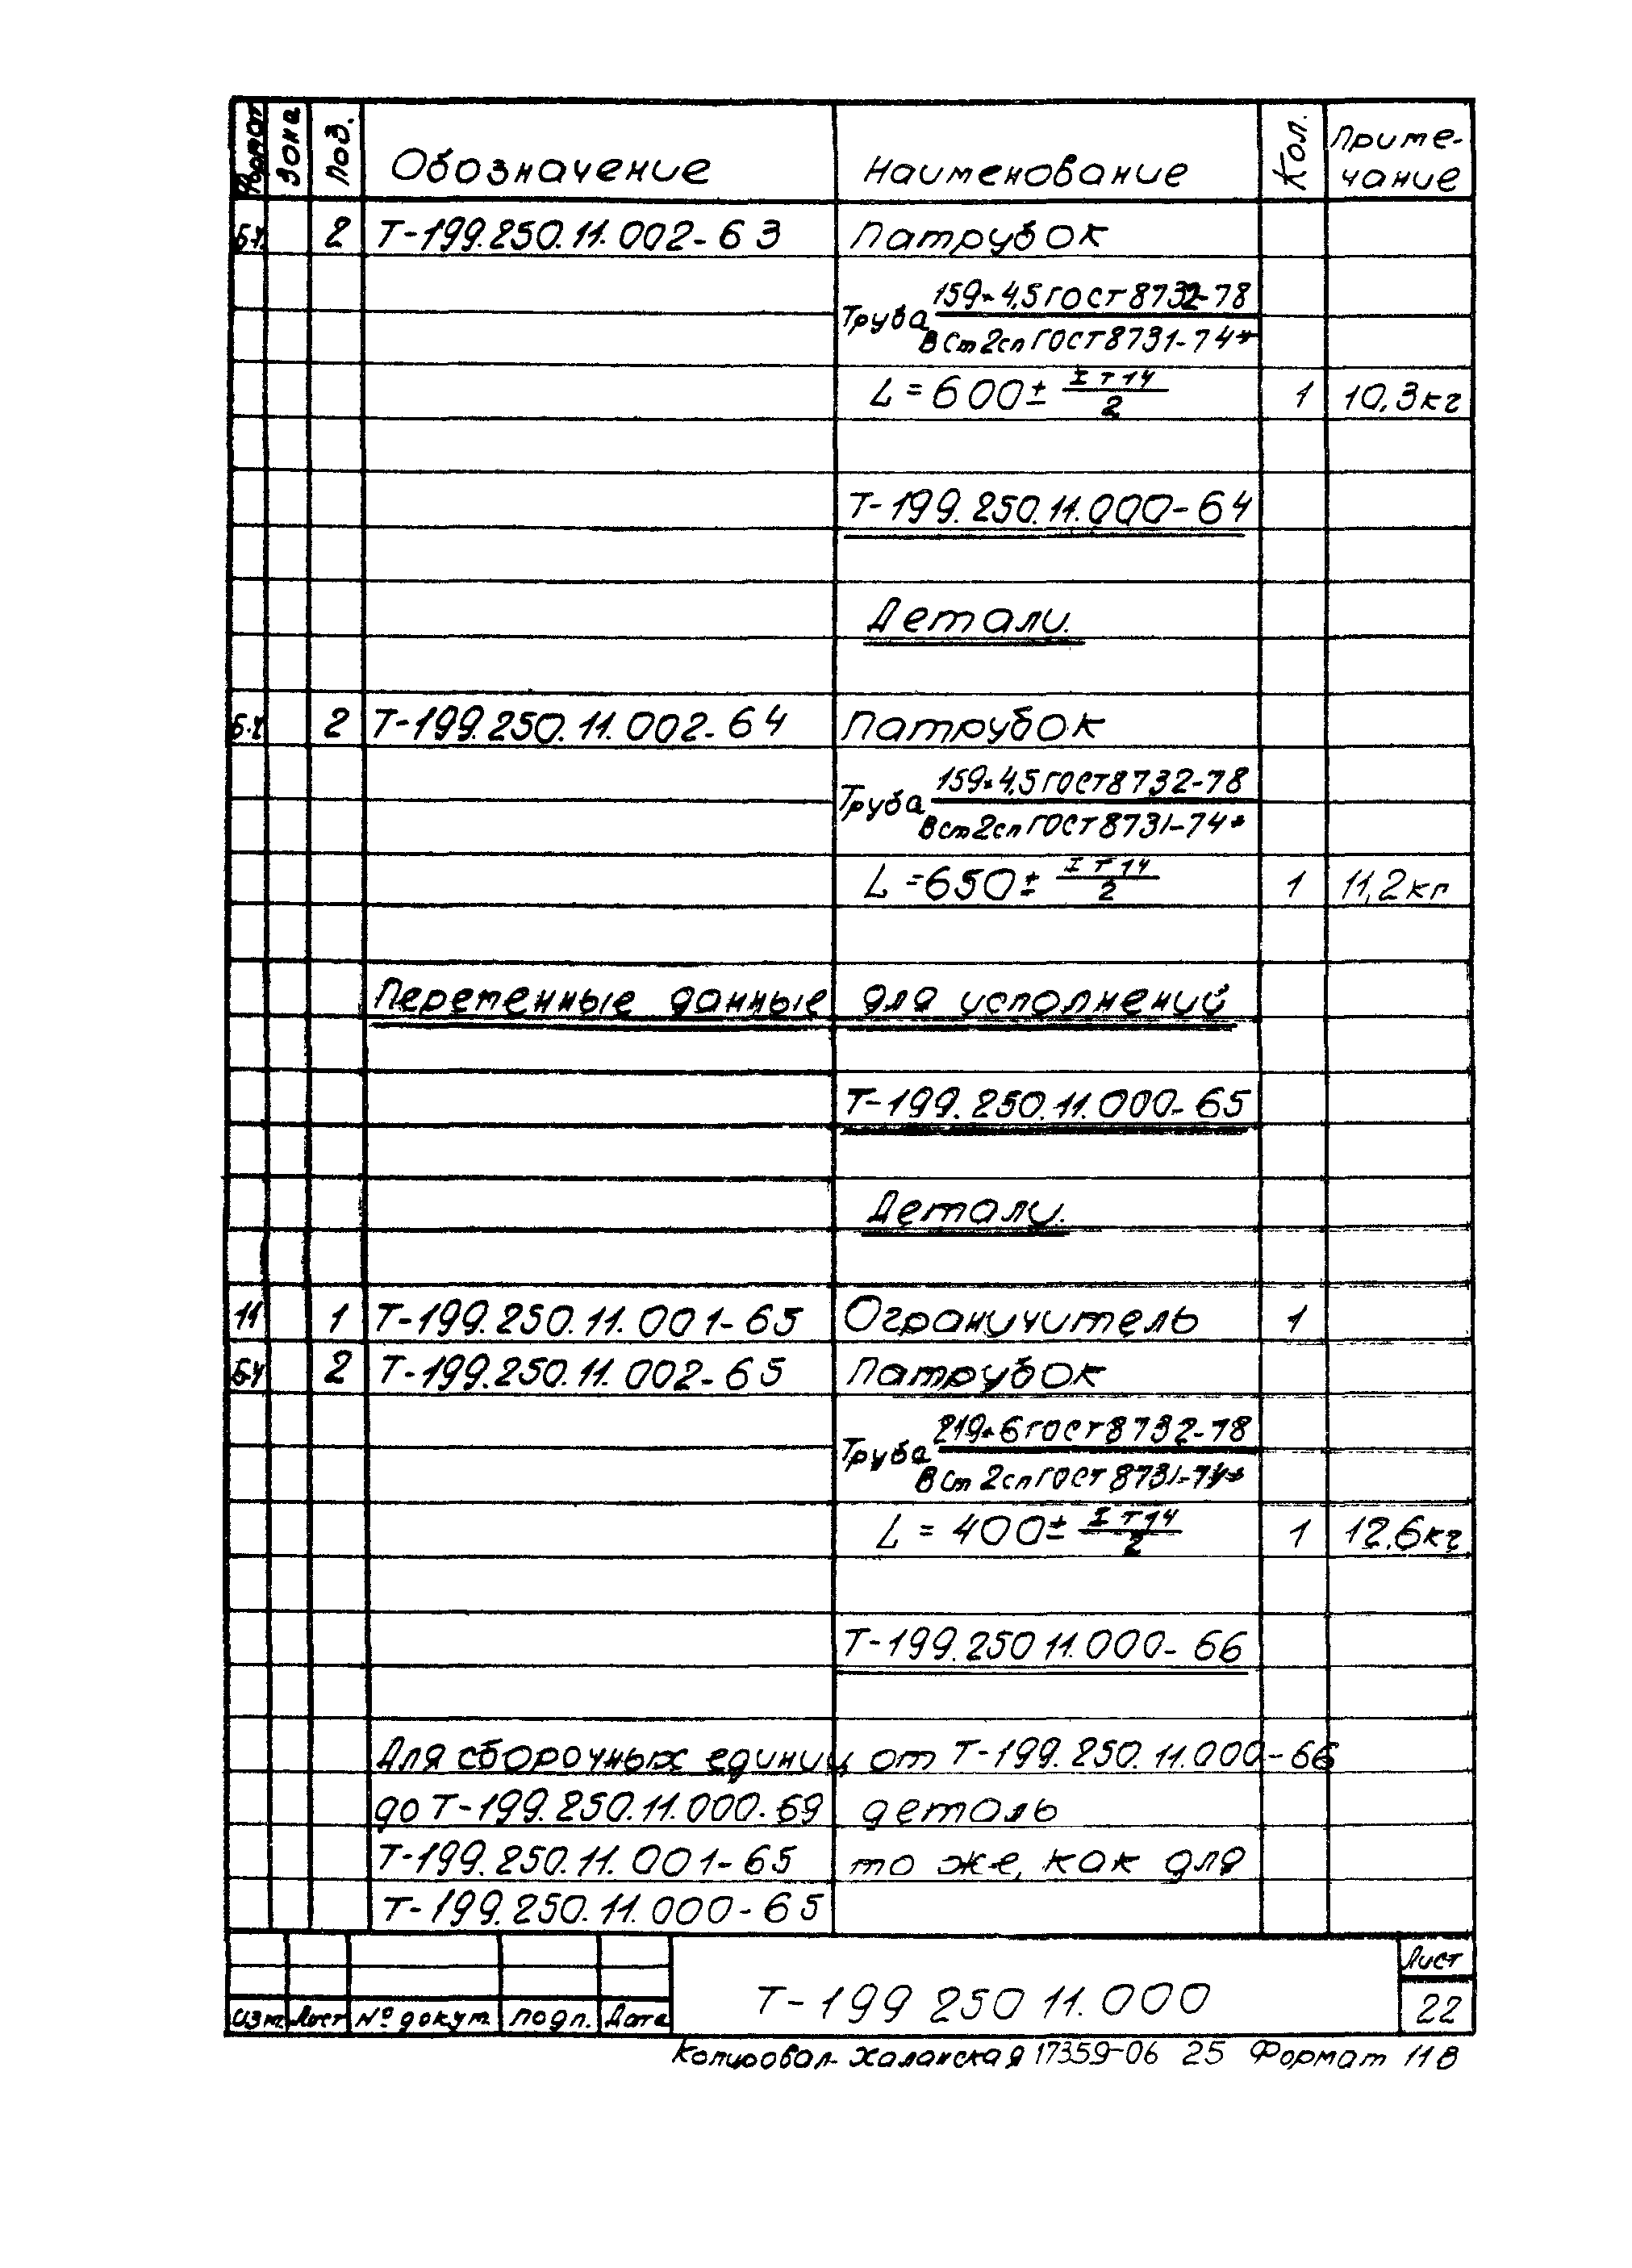 Формат Зона Поз. Обозначение Наименование Кол. Приме-
чание
БЧ 2 Т-199.250.11.002-63 Патрубок
Труба 159×4,5 ГОСТ 8732-78
ВСт2сп ГОСТ 8731-74*
L = 600 ± IT14/2 1 10,3кг
Т-199.250.11.000-64
Детали.
БЧ 2 Т-199.250.11.002-64 Патрубок
Труба 159×4,5 ГОСТ 8732-78
ВСт2сп ГОСТ 8731-74*
L = 650 ± IT14/2 1 11,2кг
Переменные данные для исполнений
Т-199.250.11.000-65
Детали.
11 1 Т-199.250.11.001-65 Ограничитель 1
БЧ 2 Т-199.250.11.002-65 Патрубок
Труба 219×6 ГОСТ 8732-78
ВСт2сп ГОСТ 8731-74*
L = 400 ± IT14/2 1 12,6кг
Т-199.250 11.000-66
Для сборочных единиц от Т-199.250.11.000-66
до Т-199.250.11.000-69 деталь
Т-199.250.11.001-65 то же, как для
Т-199.250.11.000-65
Изм. Лист № докум. Подп. Дата
Т-199 250 11.000
Лист
22
Копировал Халанская 17359-06 25 Формат 11В